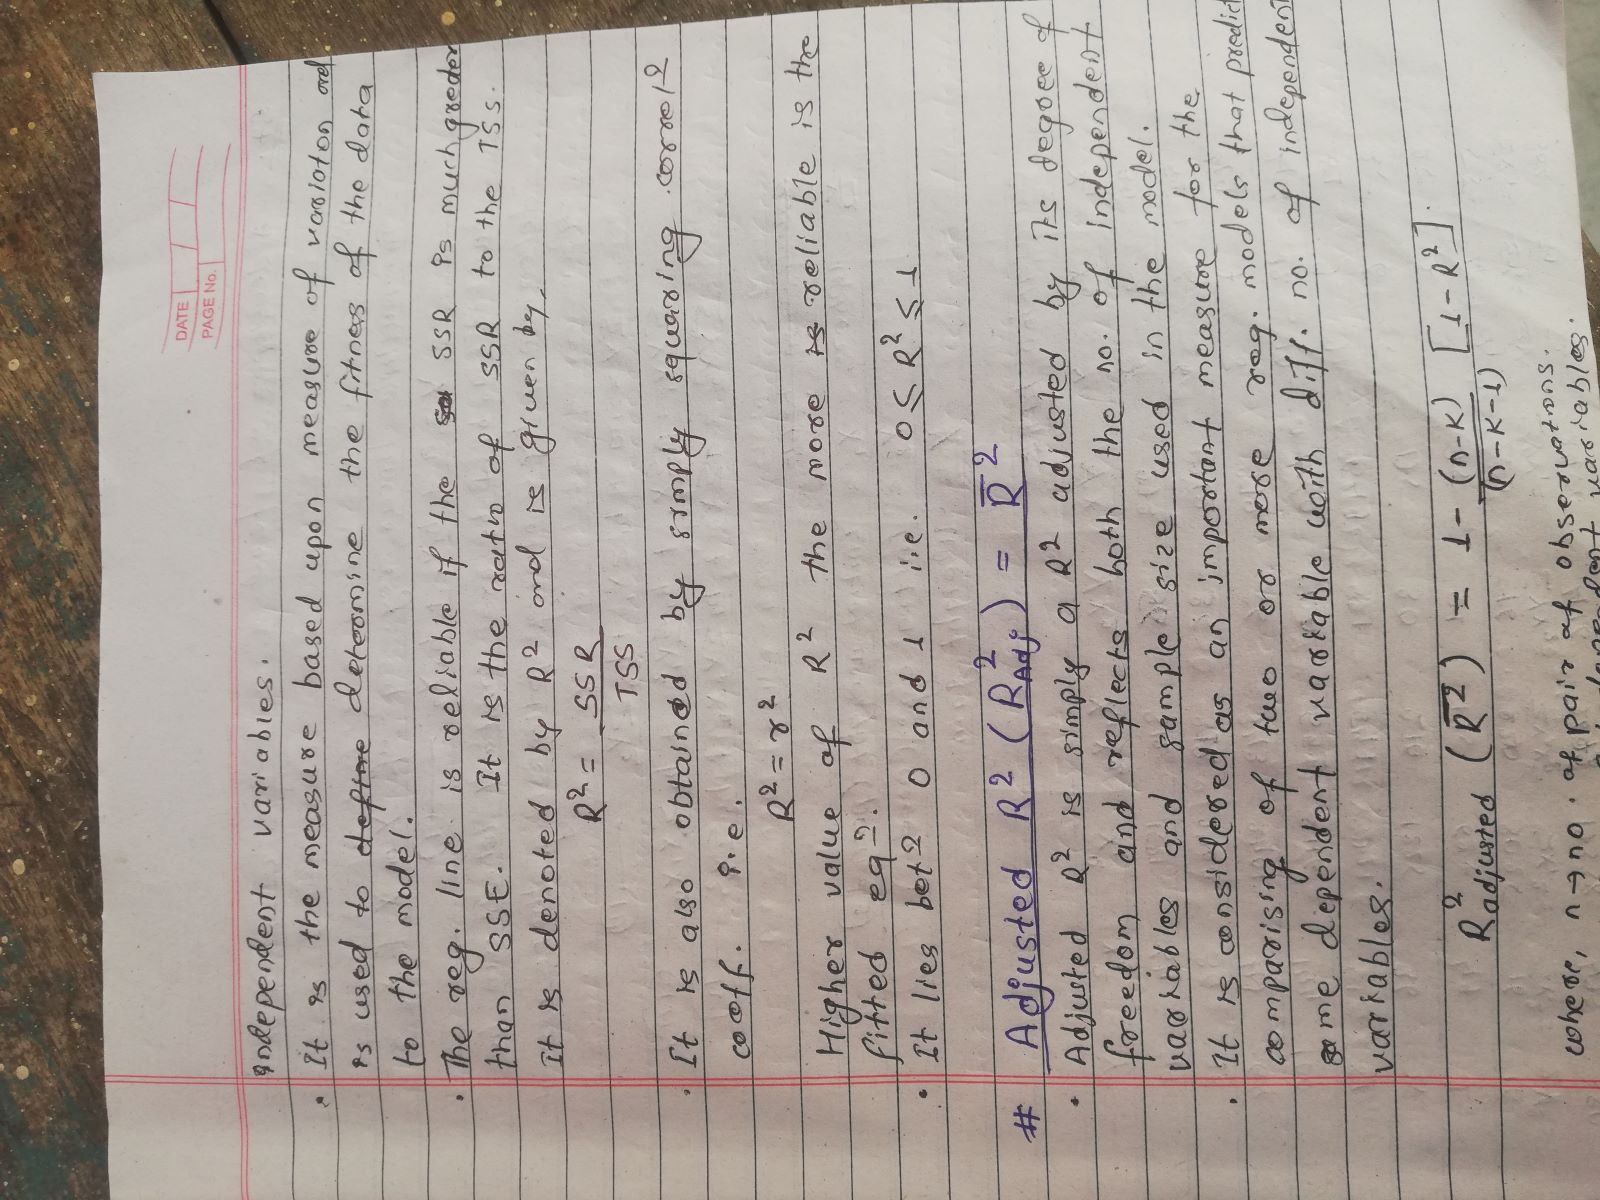 DATE
PAGE No.
independent variables.
• It is the measure based upon measure of variaton and
is used to define determine the fitness of the data
to the model.
• The reg. line is reliable if the SSR is much greder
than SSE. It is the ratio of SSR to the TSS.
It is denoted by R² and is given by,
R² = SSR
TSS
• It is also obtained by simply squaring correlⁿ
coeff. i.e.
R² = r²
Higher value of R² the more is reliable is the
fitted eqⁿ.
• It lies betⁿ 0 and 1 i.e. 0 ≤ R² ≤ 1
# Adjusted R² (R²Adj) = R̅²
• Adjusted R² is simply a R² adjusted by its degree of
freedom and reflects both the no. of independent
variables and sample size used in the model.
• It is considered as an important measure for the
comparising of two or more reg. models that predict
same dependent variable with diff. no. of independent
variables.
R²adjusted (R̅²) = 1 - (n-K) [1-R²].
(n-K-1)
where, n → no. of pair of observations.
variables.